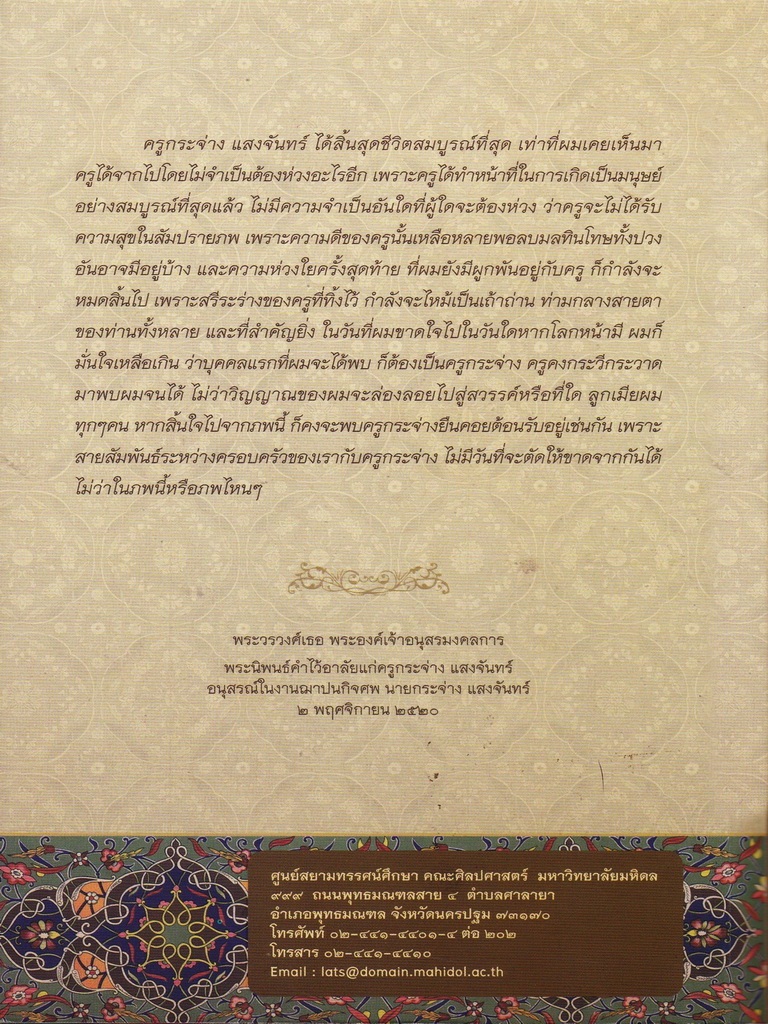 ครูกระจ่าง แสงจันทร์ ได้สิ้นสุดชีวิตสมบูรณ์ที่สุด เท่าที่ผมเคยเห็นมา
ครูได้จากไปโดยไม่จำเป็นต้องห่วงอะไรอีก เพราะครูได้ทำหน้าที่ในการเกิดเป็นมนุษย์
อย่างสมบูรณ์ที่สุดแล้ว ไม่มีความจำเป็นอันใดที่ผู้ใดจะต้องห่วง ว่าครูจะไม่ได้รับ
ความสุขในสัมปรายภพ เพราะความดีของครูนั้นเหลือหลายพอลบมลทินโทษทั้งปวง
อันอาจมีอยู่บ้าง และความห่วงใยครั้งสุดท้าย ที่ผมยังมีผูกพันอยู่กับครู ก็กำลังจะ
หมดสิ้นไป เพราะสรีระร่างของครูที่ทิ้งไว้ กำลังจะไหม้เป็นเถ้าถ่าน ท่ามกลางสายตา
ของท่านทั้งหลาย และที่สำคัญยิ่ง ในวันที่ผมขาดใจไปในวันใดหากโลกหน้ามี ผมก็
มั่นใจเหลือเกิน ว่าบุคคลแรกที่ผมจะได้พบ ก็ต้องเป็นครูกระจ่าง ครูคงกระวีกระวาด
มาพบผมจนได้ ไม่ว่าวิญญาณของผมจะล่องลอยไปสู่สวรรค์หรือที่ใด ลูกเมียผม
ทุกๆคน หากสิ้นใจไปจากภพนี้ ก็คงจะพบครูกระจ่างยืนคอยต้อนรับอยู่เช่นกัน เพราะ
สายสัมพันธ์ระหว่างครอบครัวของเรากับครูกระจ่าง ไม่มีวันที่จะตัดให้ขาดจากกันได้
ไม่ว่าในภพนี้หรือภพไหนๆ
พระวรวงศ์เธอ พระองค์เจ้าอนุสรมงคลการ
พระนิพนธ์คำไว้อาลัยแก่ครูกระจ่าง แสงจันทร์
อนุสรณ์ในงานฌาปนกิจศพ นายกระจ่าง แสงจันทร์
๒ พฤศจิกายน ๒๕๒๐
ศูนย์สยามทรรศน์ศึกษา คณะศิลปศาสตร์ มหาวิทยาลัยมหิดล
๙๙๙ ถนนพุทธมณฑลสาย ๔ ตำบลศาลายา
อำเภอพุทธมณฑล จังหวัดนครปฐม ๗๓๑๗๐
โทรศัพท์ ๐๒-๔๔๑-๔๔๐๑-๔ ต่อ ๒๐๒
โทรสาร ๐๒-๔๔๑-๔๔๑๐
Email : lats@domain.mahidol.ac.th